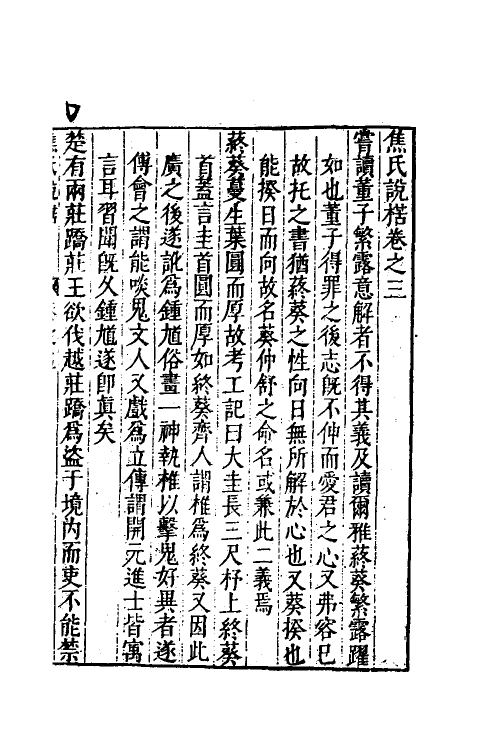 焦氏說楛卷之三
嘗讀董子繁露意解者不得其義及讀爾雅蔠葵繁露躍
如也董子得罪之後志旣不伸而愛君之心又弗容已
故托之書猶蔠葵之性向日無所解於心也又葵揆也
能揆日而向故名葵仲舒之命名或兼此二義焉
蔠葵蔓生葉圓而厚故考工記曰大圭長三尺杼上終葵
首蓋言圭首圓而厚如終葵齊人謂椎爲終葵又因此
廣之後遂訛爲鍾馗俗畫一神執椎以擊鬼好異者遂
傅會之謂能啖鬼文人又戲爲立傳謂開元進士皆寓
言耳習聞旣久鍾馗遂卽眞矣
楚有兩莊蹻莊王欲伐越莊蹻爲盜于境内而吏不能禁